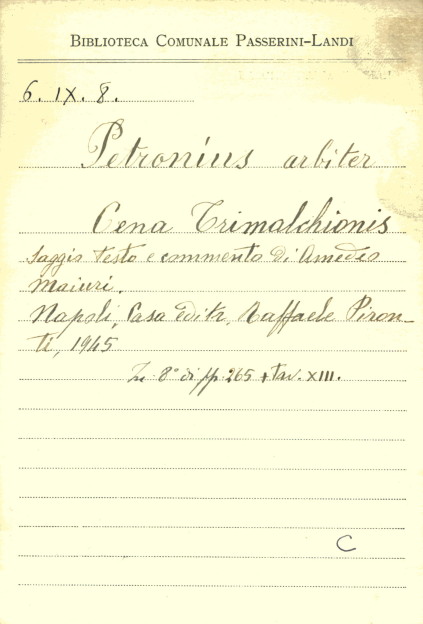 BIBLIOTECA COMUNALE PASSERINI-LANDI
6. IX. 8.
Petronius arbiter
Cena Trimalchionis
Saggio testo e commento di Amedeo
Maiuri.
Napoli, Casa editr. Raffaele Piron-
ti, 1945
In 8° di pp 265 + tav. XIII.
C